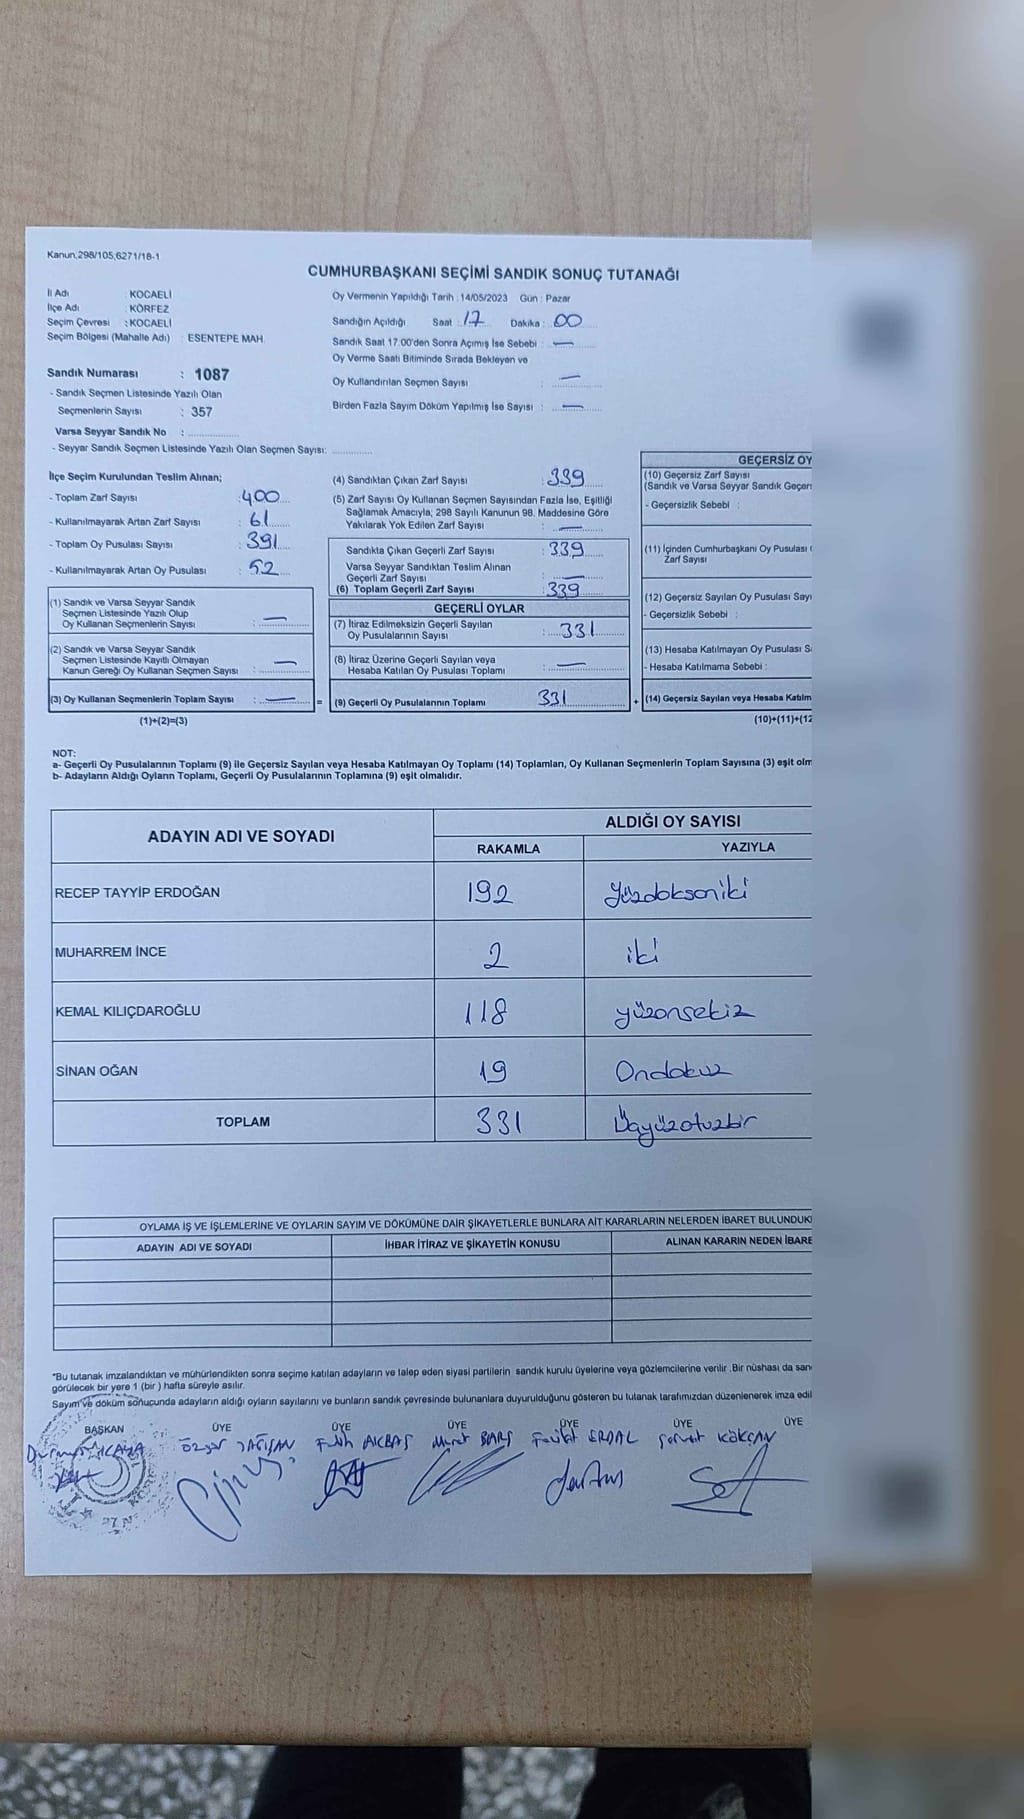 Kanun,298/105,6271/18-1
CUMHURBAŞKANI SEÇİMİ SANDIK SONUÇ TUTANAĞI
İl Adı KOCAELİ
İlçe Adı : KÖRFEZ
Seçim Çevresi : KOCAELİ
Seçim Bölgesi (Mahalle Adı) : ESENTEPE MAH.
Oy Vermenin Yapıldığı Tarih : 14/05/2023 Gün : Pazar
Sandığın Açıldığı Saat : 17 Dakika : 00
Sandık Saat 17.00'den Sonra Açımış İse Sebebi : —
Oy Verme Saati Bitiminde Sırada Bekleyen ve
Oy Kullandırılan Seçmen Sayısı : —
Birden Fazla Sayım Döküm Yapılmış İse Sayısı : —
Sandık Numarası : 1087
- Sandık Seçmen Listesinde Yazılı Olan
Seçmenlerin Sayısı : 357
Varsa Seyyar Sandık No :
- Seyyar Sandık Seçmen Listesinde Yazılı Olan Seçmen Sayısı:
İlçe Seçim Kurulundan Teslim Alınan;
- Toplam Zarf Sayısı : 400
- Kullanılmayarak Artan Zarf Sayısı : 61
- Toplam Oy Pusulası Sayısı : 391
- Kullanılmayarak Artan Oy Pusulası : 52
(1) Sandık ve Varsa Seyyar Sandık
Seçmen Listesinde Yazılı Olup
Oy Kullanan Seçmenlerin Sayısı : —
(2) Sandık ve Varsa Seyyar Sandık
Seçmen Listesinde Kayıtlı Olmayan
Kanun Gereği Oy Kullanan Seçmen Sayısı : —
(3) Oy Kullanan Seçmenlerin Toplam Sayısı : — =
(1)+(2)=(3)
(4) Sandıktan Çıkan Zarf Sayısı : 339
(5) Zarf Sayısı Oy Kullanan Seçmen Sayısından Fazla İse, Eşitliği
Sağlamak Amacıyla; 298 Sayılı Kanunun 98. Maddesine Göre
Yakılarak Yok Edilen Zarf Sayısı : —
Sandıkta Çıkan Geçerli Zarf Sayısı : 339
Varsa Seyyar Sandıktan Teslim Alınan
Geçerli Zarf Sayısı : —
(6) Toplam Geçerli Zarf Sayısı : 339
GEÇERLİ OYLAR
(7) İtiraz Edilmeksizin Geçerli Sayılan
Oy Pusulalarının Sayısı : 331
(8) İtiraz Üzerine Geçerli Sayılan veya
Hesaba Katılan Oy Pusulası Toplamı : —
(9) Geçerli Oy Pusulalarının Toplamı 331 +
GEÇERSİZ OY
(10) Geçersiz Zarf Sayısı
(Sandık ve Varsa Seyyar Sandık Geçer
- Geçersizlik Sebebi :
(11) İçinden Cumhurbaşkanı Oy Pusulası
Zarf Sayısı
(12) Geçersiz Sayılan Oy Pusulası Sayı
- Geçersizlik Sebebi :
(13) Hesaba Katılmayan Oy Pusulası S
- Hesaba Katılmama Sebebi :
(14) Geçersiz Sayılan veya Hesaba Katılm
(10)+(11)+(12
NOT:
a- Geçerli Oy Pusulalarının Toplamı (9) ile Geçersiz Sayılan veya Hesaba Katılmayan Oy Toplamı (14) Toplamları, Oy Kullanan Seçmenlerin Toplam Sayısına (3) eşit olm
b- Adayların Aldığı Oyların Toplamı, Geçerli Oy Pusulalarının Toplamına (9) eşit olmalıdır.
ADAYIN ADI VE SOYADI
ALDIĞI OY SAYISI
RAKAMLA YAZIYLA
RECEP TAYYİP ERDOĞAN 192 Yüzdoksaniki
MUHARREM İNCE 2 iki
KEMAL KILIÇDAROĞLU 118 yüzonsekiz
SİNAN OĞAN 19 Ondokuz
TOPLAM 331 Üçyüzotuzbir
OYLAMA İŞ VE İŞLEMLERİNE VE OYLARIN SAYIM VE DÖKÜMÜNE DAİR ŞİKAYETLERLE BUNLARA AİT KARARLARIN NELERDEN İBARET BULUNDUK
ADAYIN ADI VE SOYADI İHBAR İTİRAZ VE ŞİKAYETİN KONUSU ALINAN KARARIN NEDEN İBARE
*Bu tutanak imzalandıktan ve mühürlendikten sonra seçime katılan adayların ve talep eden siyasi partilerin sandık kurulu üyelerine veya gözlemcilerine verilir .Bir nüshası da san
görülecek bir yere 1 (bir ) hafta süreyle asılır.
Sayım ve döküm sonucunda adayların aldığı oyların sayılarını ve bunların sandık çevresinde bulunanlara duyurulduğunu gösteren bu tutanak tarafımızdan düzenlenerek imza edil
BAŞKAN ÜYE ÜYE ÜYE ÜYE ÜYE ÜYE
Fatih AKBAŞ Murat ERDAL Servet KÖKÇAN